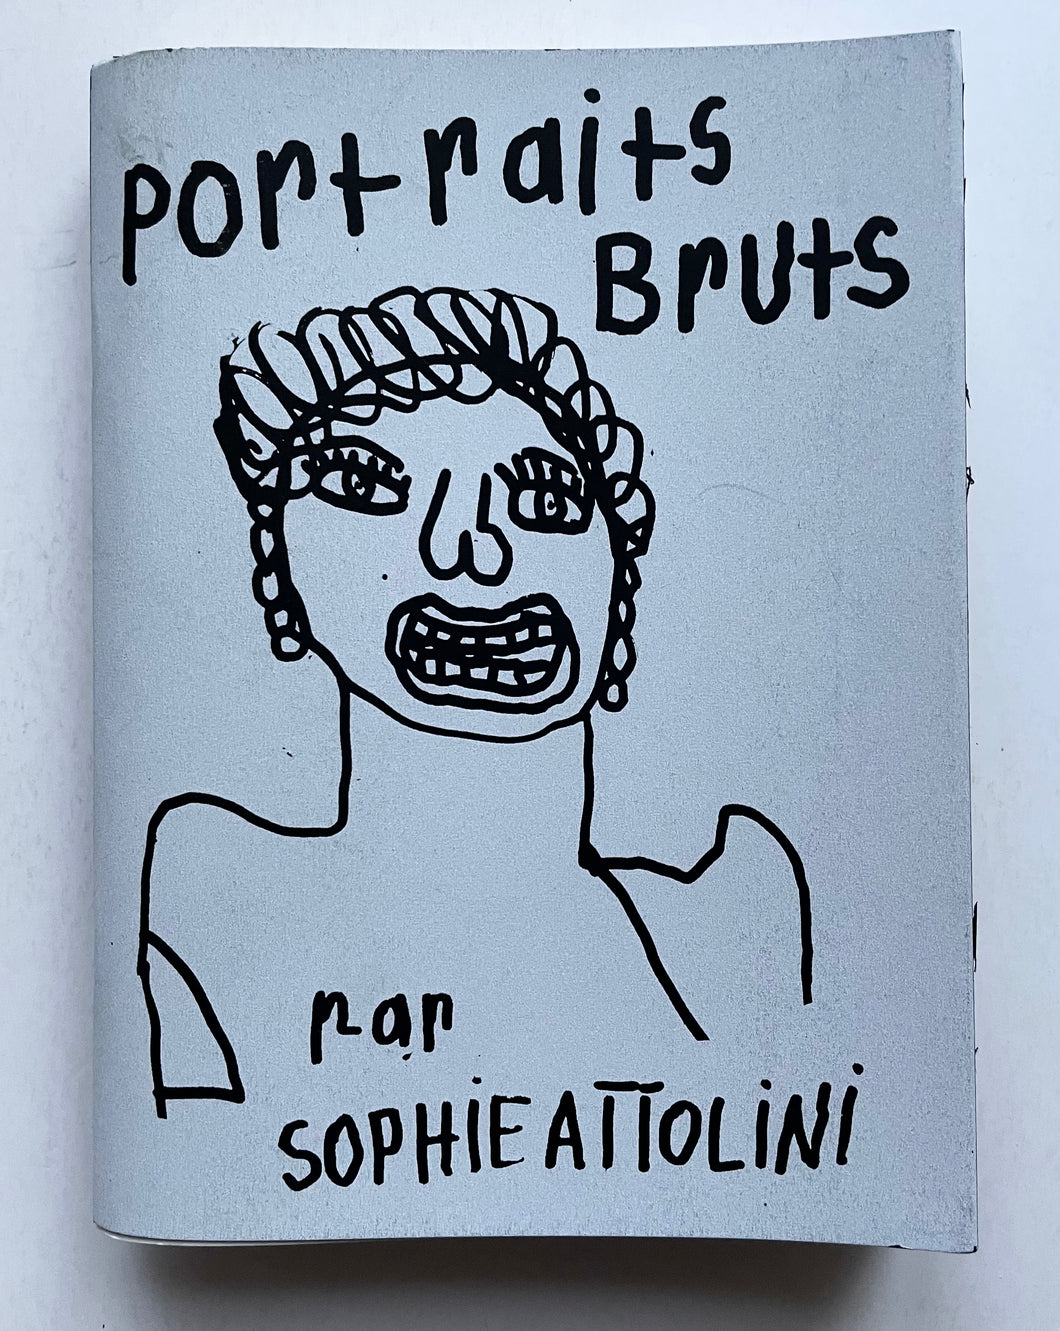 Portraits
Bruts
par
SOPHiE ATTOLiNi